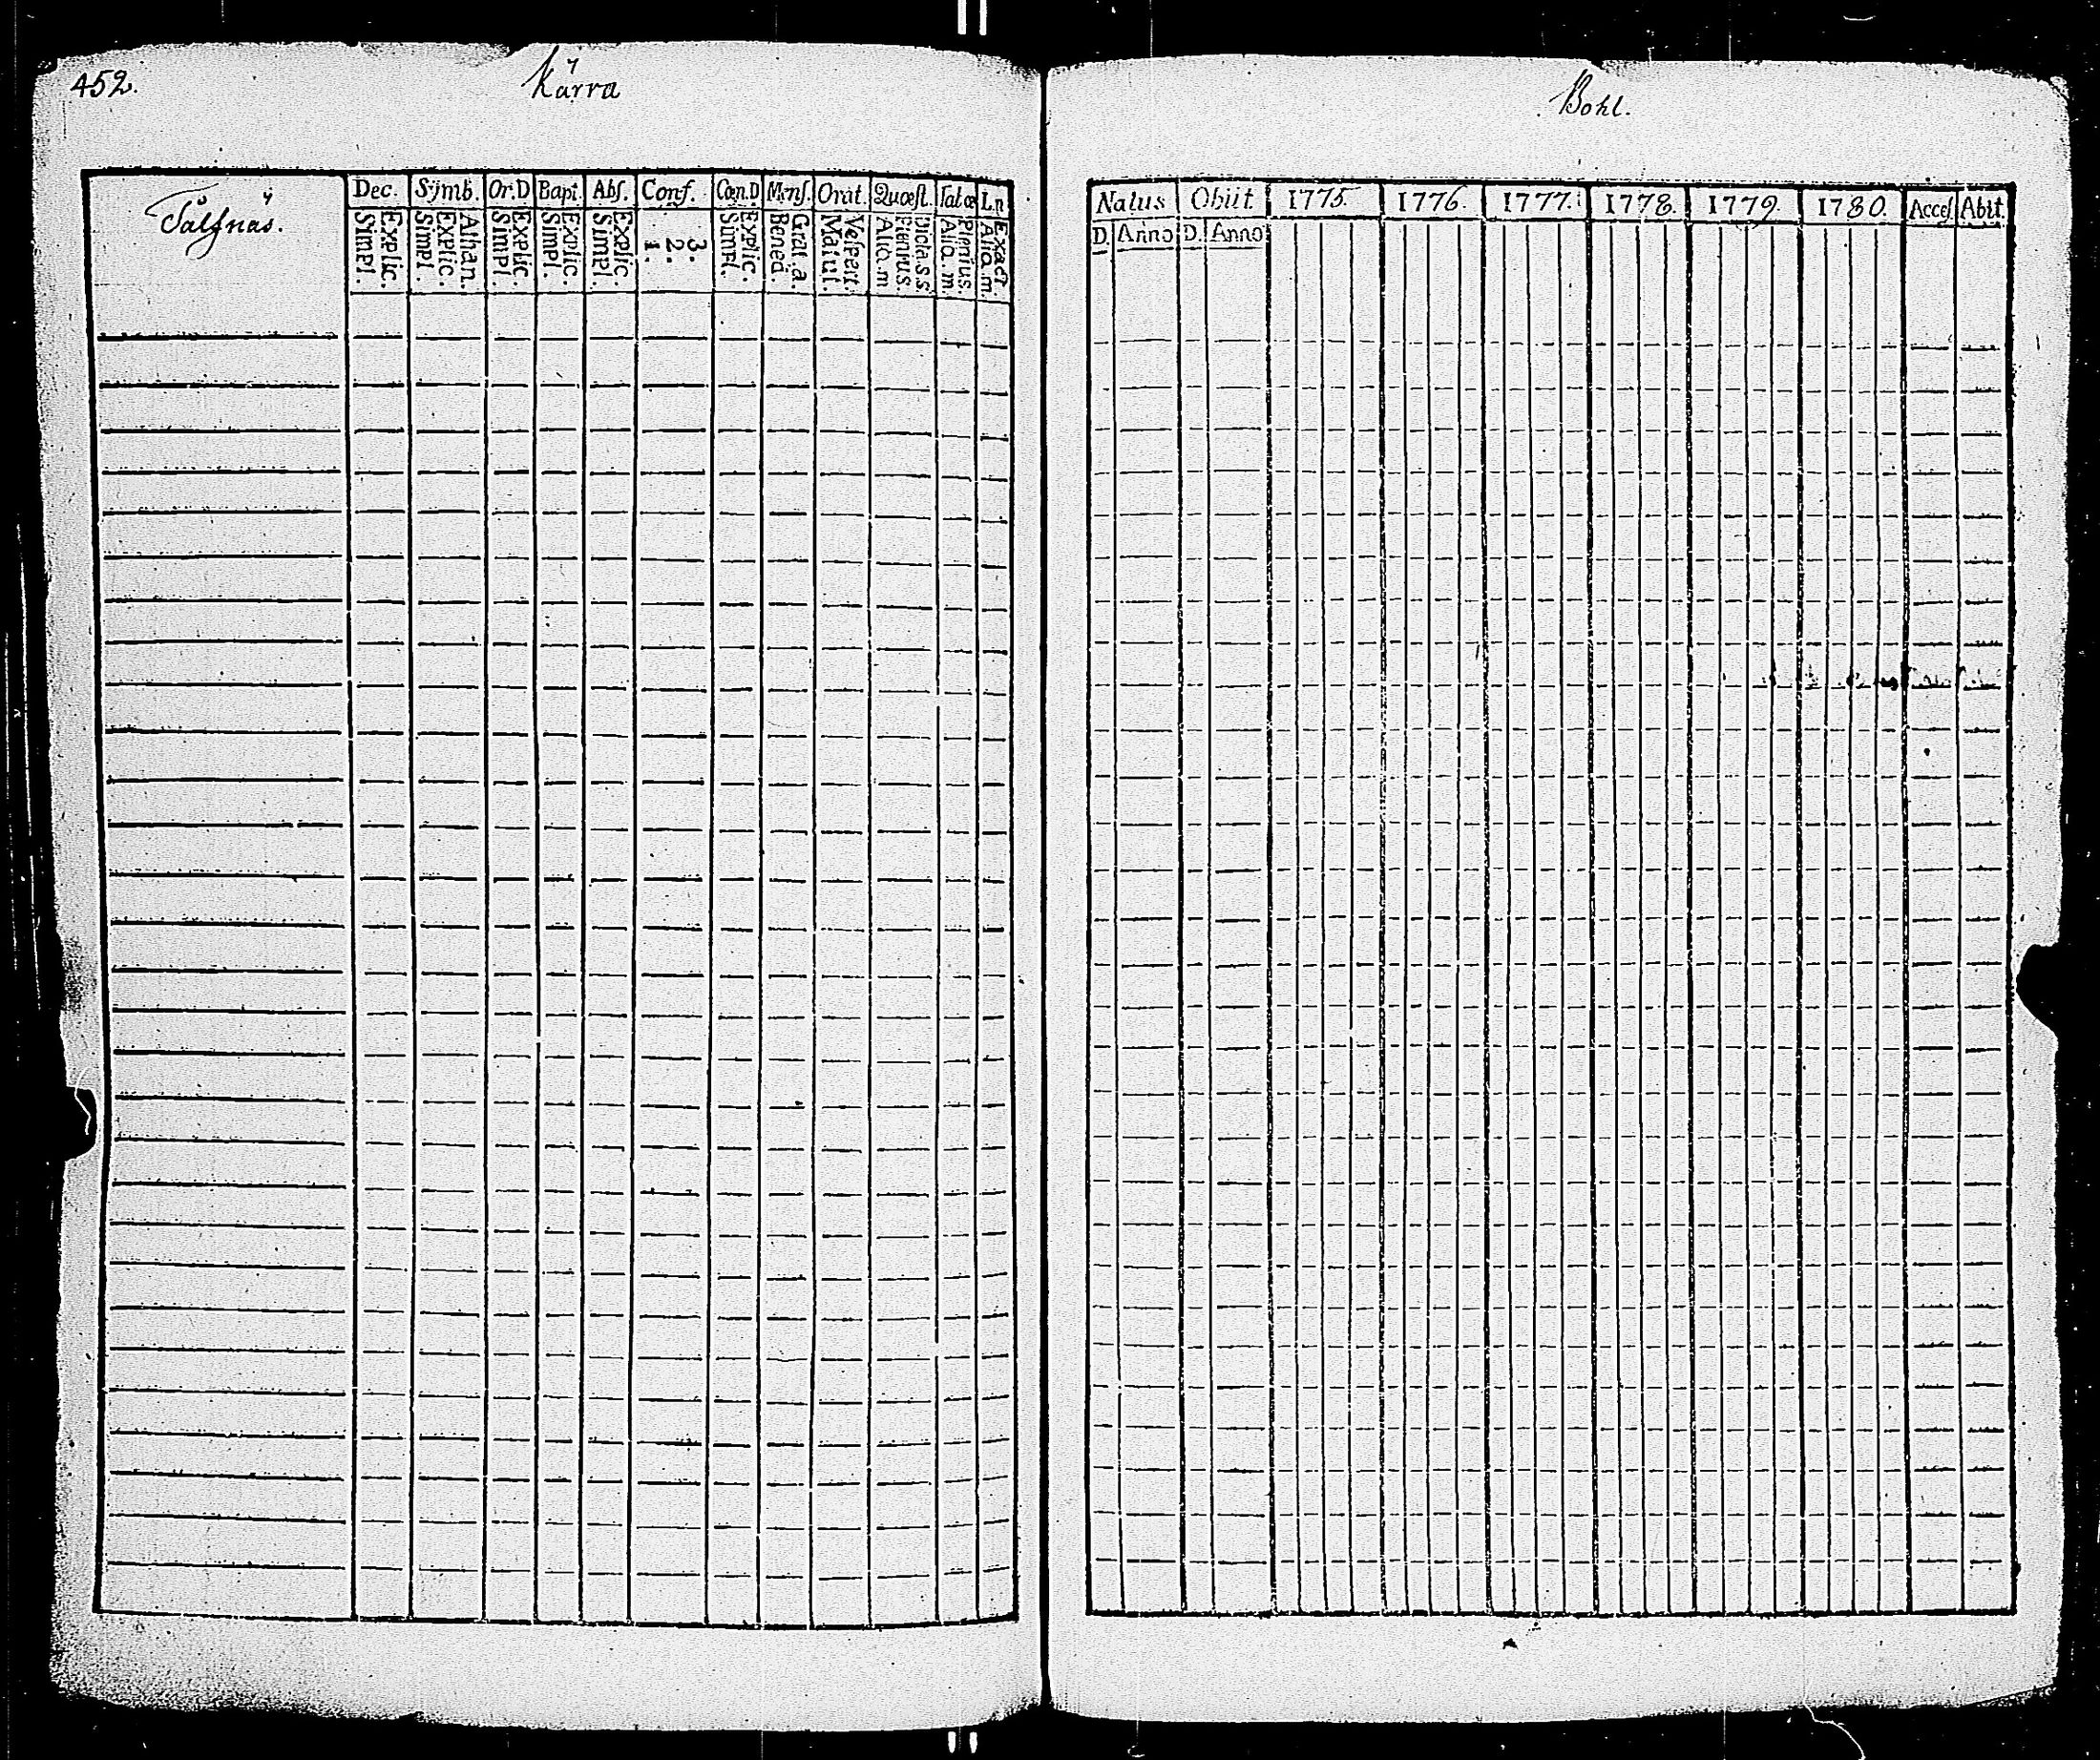 452. Kärra
Dec. Symb. Or.D Bapt. Abſ. Conf. Cœn.D Menſ. Orat. Quæſt. Tab.œ L.n
Tålfnäs.
Explic.
Simpl.
Athan.
Explic.
Simpl.
Explic.
Simpl.
Explic.
Simpl.
Explic.
Simpl.
3.
2.
1.
Explic.
Simpl.
Grat. a.
Bened.
Veſpert.
Matut.
Dicta.s.s.
Plenius.
Aliq.m
Plenius.
Aliq.m
Exact
Aliq.m.
Bohl.
Natus Obiit 1775. 1776. 1777. 1778. 1779. 1780. Acceſ. Abit.
D. Anno D. Anno